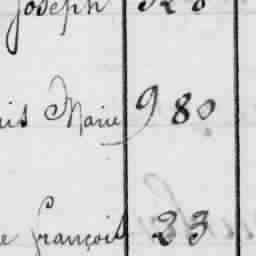 Joseph 
is Marie 980
e françois 23